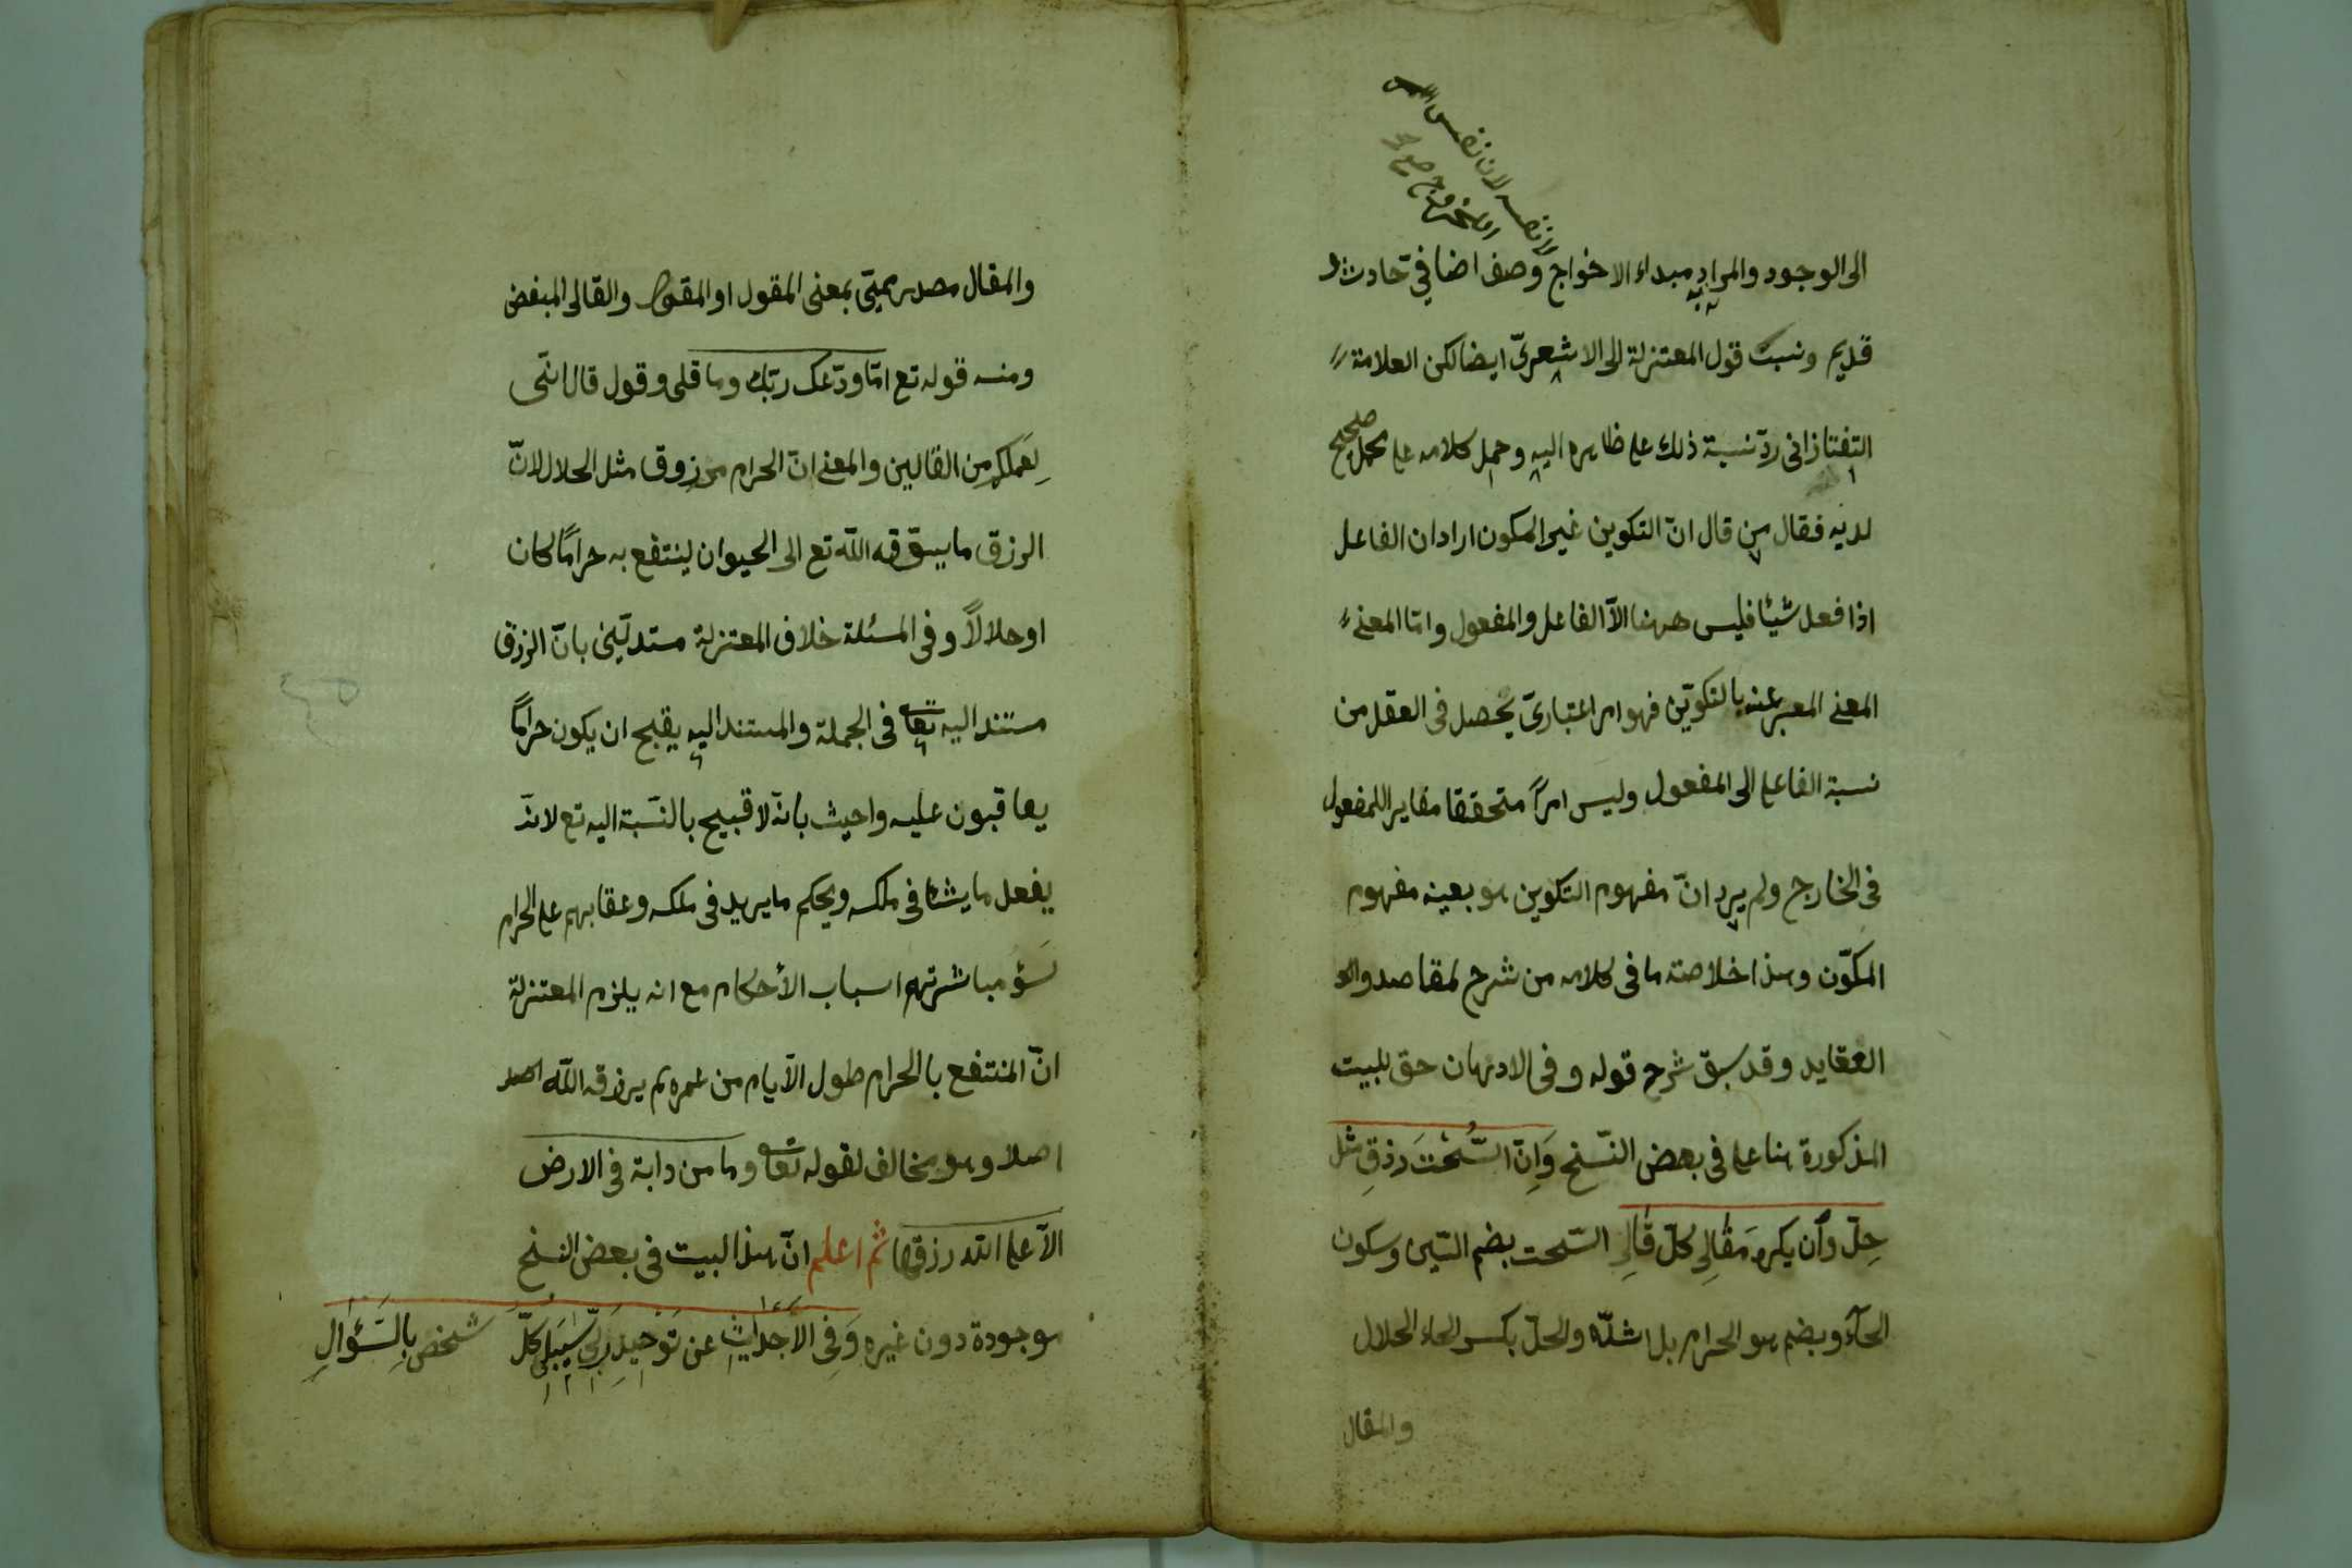 الى الوجود والمراد به مبداء الاخراج وصف اضافي حادث لا
لا نفسه لان نفس
الاخراج
قديم ونسبت قول المعتزلة الى الاشعريّ ايضا لكن العلامة
التفتازانى ردّ نسبة ذلك على ظاهره اليه وحمل كلامه على محمل صحيح
لديه فقال من قال انّ التكوين غير المكون اراد ان الفاعل
اذا فعل شيئا فليس ههنا الاّ الفاعل والمفعول وامّا المعنى
المعنى المعبر عنه بالتكوين فهو امر اعتبارىّ يحصل فى العقل من
نسبة الفاعل الى المفعول وليس امراً متحققا مغايرا للمفعول
فى الخارج ولم يرد انّ مفهوم التكوين هو بعينه مفهوم
المكوّن وهذا خلاصته ما فى كلامه من شرح لمقاصد
العقايد وقد سبق شرح قوله وفى الاذهان حق للبيت
المذكورة هنا على فى بعض النّسخ وَاِنّ السُّحْتَ رزقِ مثل
حِلّ وان يكره مَقالِى كلّ قالِى السّحت بضم السّين وسكون
الحآء وبضم هو الحرام بل اشدّه والحلّ بكسر الحاء الحلال
والمقال
والمقال مصدر ميمّى بمعنى المقول او المقول والقالى المبغض
ومنه قوله تع امّا ودّعك ربّك وما قلى وقول قال انّى
لِعَمَلِكم مِن القالين والمعنى انّ الحرام مرزوق مثل الحلال لانّ
الرزق ما يسوّقه اللّه تع الى الحيوان لينتفع به حراماً كان
او حلالاً وفى المسئلة خلاف المعتزلة مستدلّين بانّ الرزق
مستند اليه تعالى فى الجملة والمستند اليه يقبح ان يكون حراماً
يعاقبون عليه واجيب بانّه لا قبيح بالنّسبة اليه تع لانّه
يفعل ما يشاء فى ملكه ويحكم ما يريد فى ملكه وعقابهم على الحرام
لسؤ مباشرتهم اسباب الأحكام مع انه يلزم المعتزلة
انّ المنتفع بالحرام طول الآيام من عمره لم يرزقه اللّه اصلا
اصلا وهو مخالف لقوله تعالى وما من دابة فى الارض
الاّ على اللّه رزقها ثم اعلم انّ هذا البيت فى بعض النسخ
موجودة دون غيره وَفِى الاَجداثِ عن تَوْحيدِ رَبّى سَيُبلى كلّ شخص بِالسّؤالِ